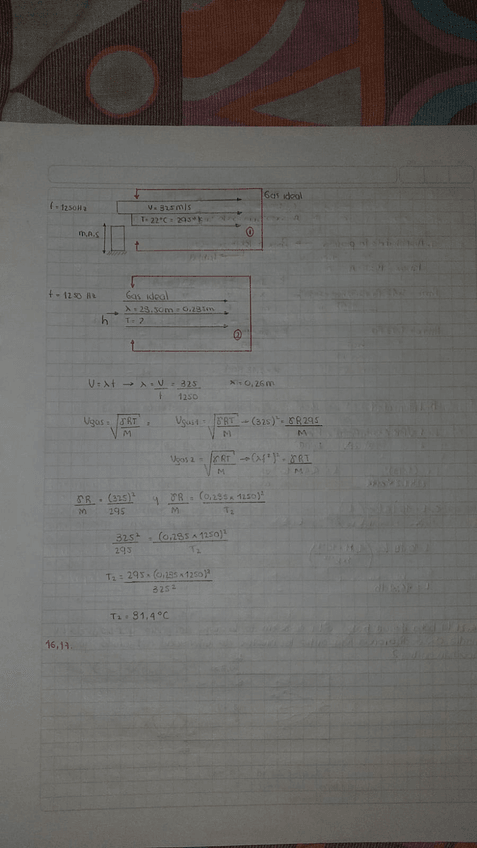 Gas ideal
f = 1250Hz
V = 325m/s
T = 22°C = 295°K
①
m.A.S
f = 1250 Hz
Gas ideal
T = ?
h
②
V = λf → λ = V/f = 325/1250 λ = 0,26m
Vgas = √(γRT/M) , Vgas1 = √(γRT/M) → (325)² = γR295/M
Vgas2 = √(γRT/M) → (λf)² = γRT/M
γR/M = (325)²/295 y γR/M = (0,285×1250)²/T₂
325²/295 = (0,285×1250)²/T₂
T₂ = 295×(0,285×1250)²/325²
T₂ = 91,4°C
16,17.